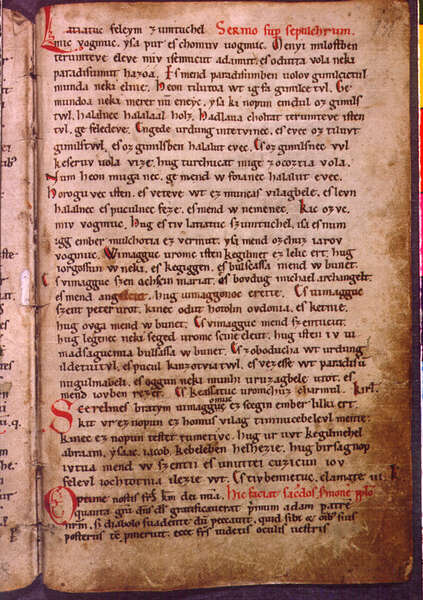 Latiatuc feleym zumtuchel Sermo sup sepulchrum.
mic vogmuc. ysa pur es chomuv uogmuc. Menyi milostben
terumteve eleve miv isemucut adamut. es odutta vola neki
paradisumut hazoa. Es mend paradisumben uolov gimilcictul
munda neki elnie. Heon tilutoa wt ig fa gimilce tvl. Ge
mundoa neki meret nu eneyc. ysa ki nopun emdul oz gimils
twl. halalnec halalaal holz. Hadlaua choltat terumteve isten
tvl. ge feledeve. Engede urdung intetvinec. es evec oz tiluvt
gimilstwl. es oz gimilsben halalut evec. Es oz gimilsnec vvl
keseruv uola vize. hug turchucat mige zocoztia vola.
Num heon muga nec. ge mend w foianec halalut evec.
Horogu vec isten. es veteve wt ez muncas vilagbele. es levn
halalnec es puculnec feze. es mend w nemenec. Kic ozvc.
miv vogmuc. Hug es tiv latiatuv szumtuchel. isa es num
igg ember mulchotia ez vermut. ysa mend ozchuz iarov
vogmuc. Wimagguc uromc isten kegilmet ez lelic ert. hug
iorgossun w neki. es kegiggen. es bulsassa mend w bunet.
Es vimagguc szen achscin mariat. es bovdug michael archangelt.
es mend angelcut. hug uimaggonoc erette. Es uimagguc
szent peter urot. kinec odut hotolm ovdonia. es ketnie.
hug ovga mend w bunet. Es vimagguc mend szentucut.
hug legenec neki seged uromc scine eleut. hug isten iv ui
madsaguc mia bulsassa w bunet. Es zoboducha wt urdung
ildetuitvl. es pucul kinzotviatwl. es vezesse wt paradisu
nugulmabeli. es oggun neki munhi uruzagbele utot. es
mend iovben rezet. Es keassatuc uromchuz charmul. Kirl.
Scerelmes bratym uimagguc omuc ez scegin ember lilki ert.
kit vr ez nopun ez homus vilag timnucebelevl mente.
kinec ez nopun testet tumetivc. hug ur uvt kegilmehel
abraam. ysaac. iacob. kebeleben helhezie. hug birsagnop
ivtva mend w szentii es unuttei cuzicun iov
felevl iochtotnia ilezie wt. Es tiv bennetuc. clamate iii. K.
Hic faciat sacdos smone pplo
quanta gra dns ds gratificaverat primum adam patre
nrm. si diabolo suadente dum peccavit. quid sibi et omib suis
posteris